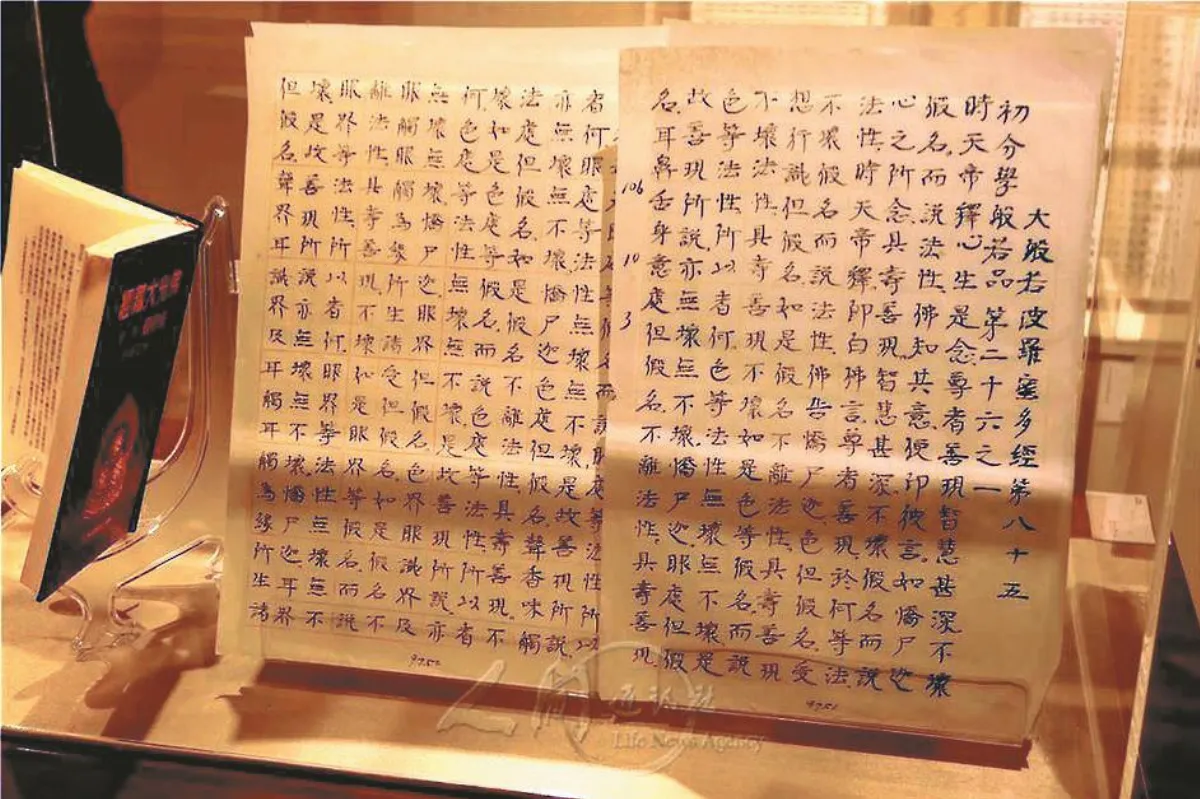 大般若波羅蜜多經第八十五
初分學般若品第二十六之一
時天帝釋心生是念.尊者善現智慧甚深不壞
假名.而說法性.佛知其意.便印彼言.如憍尸迦
心之所念.具壽善現.智慧甚深.不壞假名而說
法性.時天帝釋.即白佛言.尊者善現.於何等法.
不壞假名而說法性.佛告憍尸迦.色但假名.受
想行識但假名.如是假名不離法性.具壽善現
不壞法性.具壽善現不壞如是色等假名.而說
色等法性.所以者何.色等法性無壞無不壞.是
故善現所說.亦無壞無不壞.憍尸迦.眼處但假
名.耳鼻舌身意處但假名.不離法性.具壽善現.
106
10
3
9751
而說眼處等法性所以
者何.眼處等法性無壞無不壞.是故善現所說.
亦無壞無不壞.憍尸迦.色處但假名.聲香味觸
法處但假名.如是假名不離法性.具壽善現.不
壞如是色處等假名.而說色處等法性.所以者
何.色處等法性無壞無不壞.是故善現所說.亦
無壞無壞.憍尸迦.眼界但假名.色界眼識界及
眼觸眼觸為緣.所生諸受但假名.如是假名不
離法性.具壽善現.不壞如是眼界等假名.而說
眼界等法性.所以者何.眼界等法性無壞無不
壞.是故善現所說亦無壞無不壞.憍尸迦.耳界
但假名.聲界耳識界及耳觸耳觸為緣所生諸
9752
人間通訊社
Life News Agency